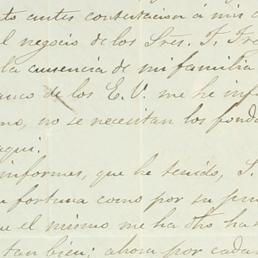 to antes contestacion á mis c
l negocio de los Sres. F. Tre
la ausencia de mi familia
anco de los E.V. me he inf
mo, no se necesitan los fond
aqui.
informes, que he tenido, S.
u fortuna como por su pru
ue el mismo me ha dho ha
tan bien; ahora por cada